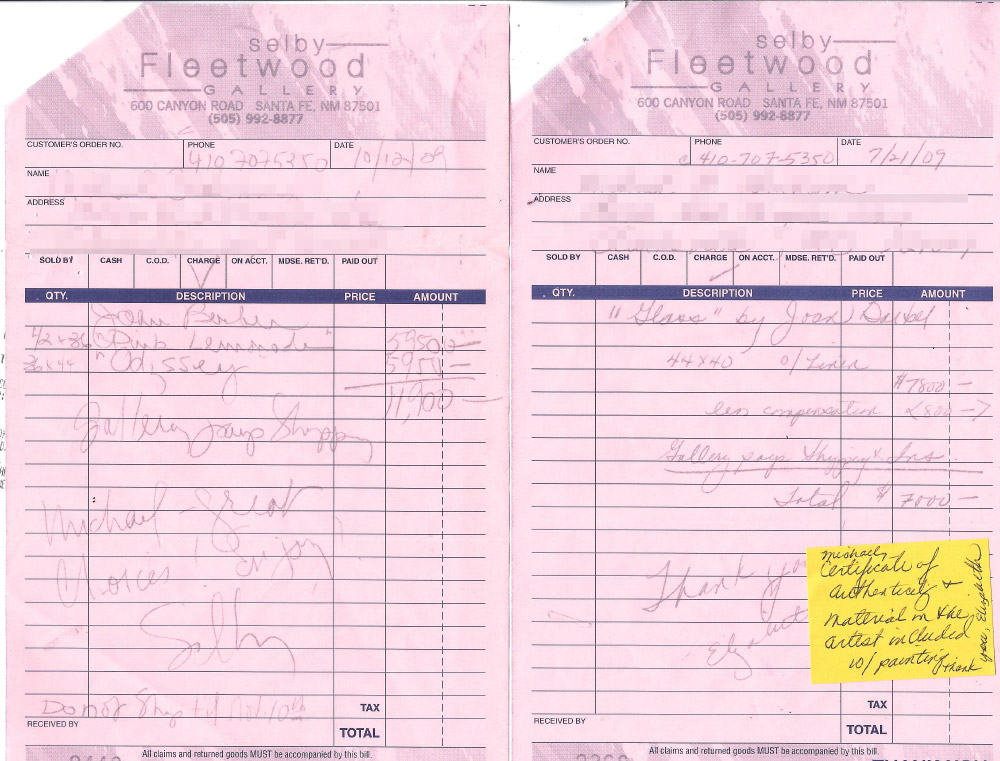 selby
Fleetwood
GALLERY
600 CANYON ROAD SANTA FE, NM 87501
(505) 992-8877
CUSTOMER'S ORDER NO. PHONE DATE
410 7075350 10/12/09
NAME
ADDRESS
SOLD BY CASH C.O.D. CHARGE ON ACCT. MDSE. RET'D. PAID OUT
QTY. DESCRIPTION PRICE AMOUNT
John
42x36 "Pink Lemonade" 5950 —
36x44 "Odissey 5950 —
11,900 —
Gallery pays Shipping
Michael - Great
Choices! Enjoy
Selby
Do not Ship til Nov. 10th
TAX
RECEIVED BY
TOTAL
All claims and returned goods MUST be accompanied by this bill.
selby
Fleetwood
GALLERY
600 CANYON ROAD SANTA FE, NM 87501
(505) 992-8877
CUSTOMER'S ORDER NO. PHONE DATE
c 410-707-5350 7/21/09
NAME
ADDRESS
SOLD BY CASH C.O.D. CHARGE ON ACCT. MDSE. RET'D. PAID OUT
QTY. DESCRIPTION PRICE AMOUNT
"Glass" by Joan
44x40 o/Linen
$7800 —
less compensation <800 —>
Gallery pays Shipping & Ins.
Total $ 7000 —
Thank you
Elizabeth
Michael,
Certificate of
authenticity &
material on the
artist included
w/ painting. Thank
you, Elizabeth
TAX
RECEIVED BY
TOTAL
All claims and returned goods MUST be accompanied by this bill.